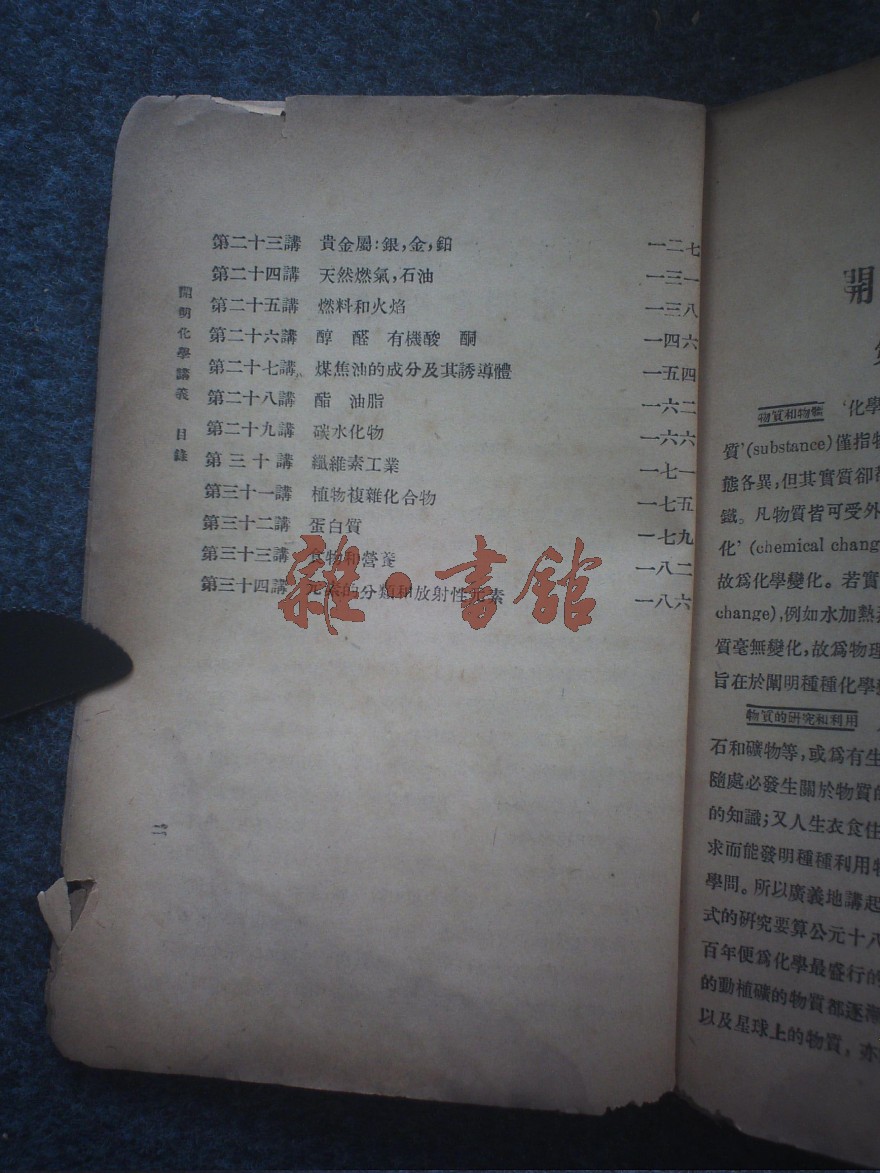 第二十三講 貴金屬:銀,金,鉑 一二七
第二十四講 天然燃氣,石油 一三一
第二十五講 燃料和火焰 一三八
第二十六講 醇 醛 有機酸 酮 一四六
第二十七講 煤焦油的成分及其誘導體 一五四
第二十八講 酯 油脂 一六二
第二十九講 碳水化物 一六六
第三十講 纖維素工業 一七一
第三十一講 植物複雜化合物 一七五
第三十二講 蛋白質 一七九
第三十三講 食物和營養 一八二
第三十四講 元素的分類和放射性元素 一八六
開明化學講義 目錄
二
雜·書舘
開
物質和物體 '化學
質'(substance)僅指物
態各異,但其實質卻都
鐵。凡物質皆可受外
化' (chemical chang
故爲化學變化。若實
change),例如水加熱
質毫無變化,故爲物理
旨在於闡明種種化學
物質的研究和利用
石和礦物等,或爲有生
隨處必發生關於物質的
的知識;又人生衣食住
求而能發明種種利用物
學問。所以廣義地講起
式的研究要算公元十八
百年便爲化學最盛行的
的動植礦的物質都逐漸
以及星球上的物質,亦